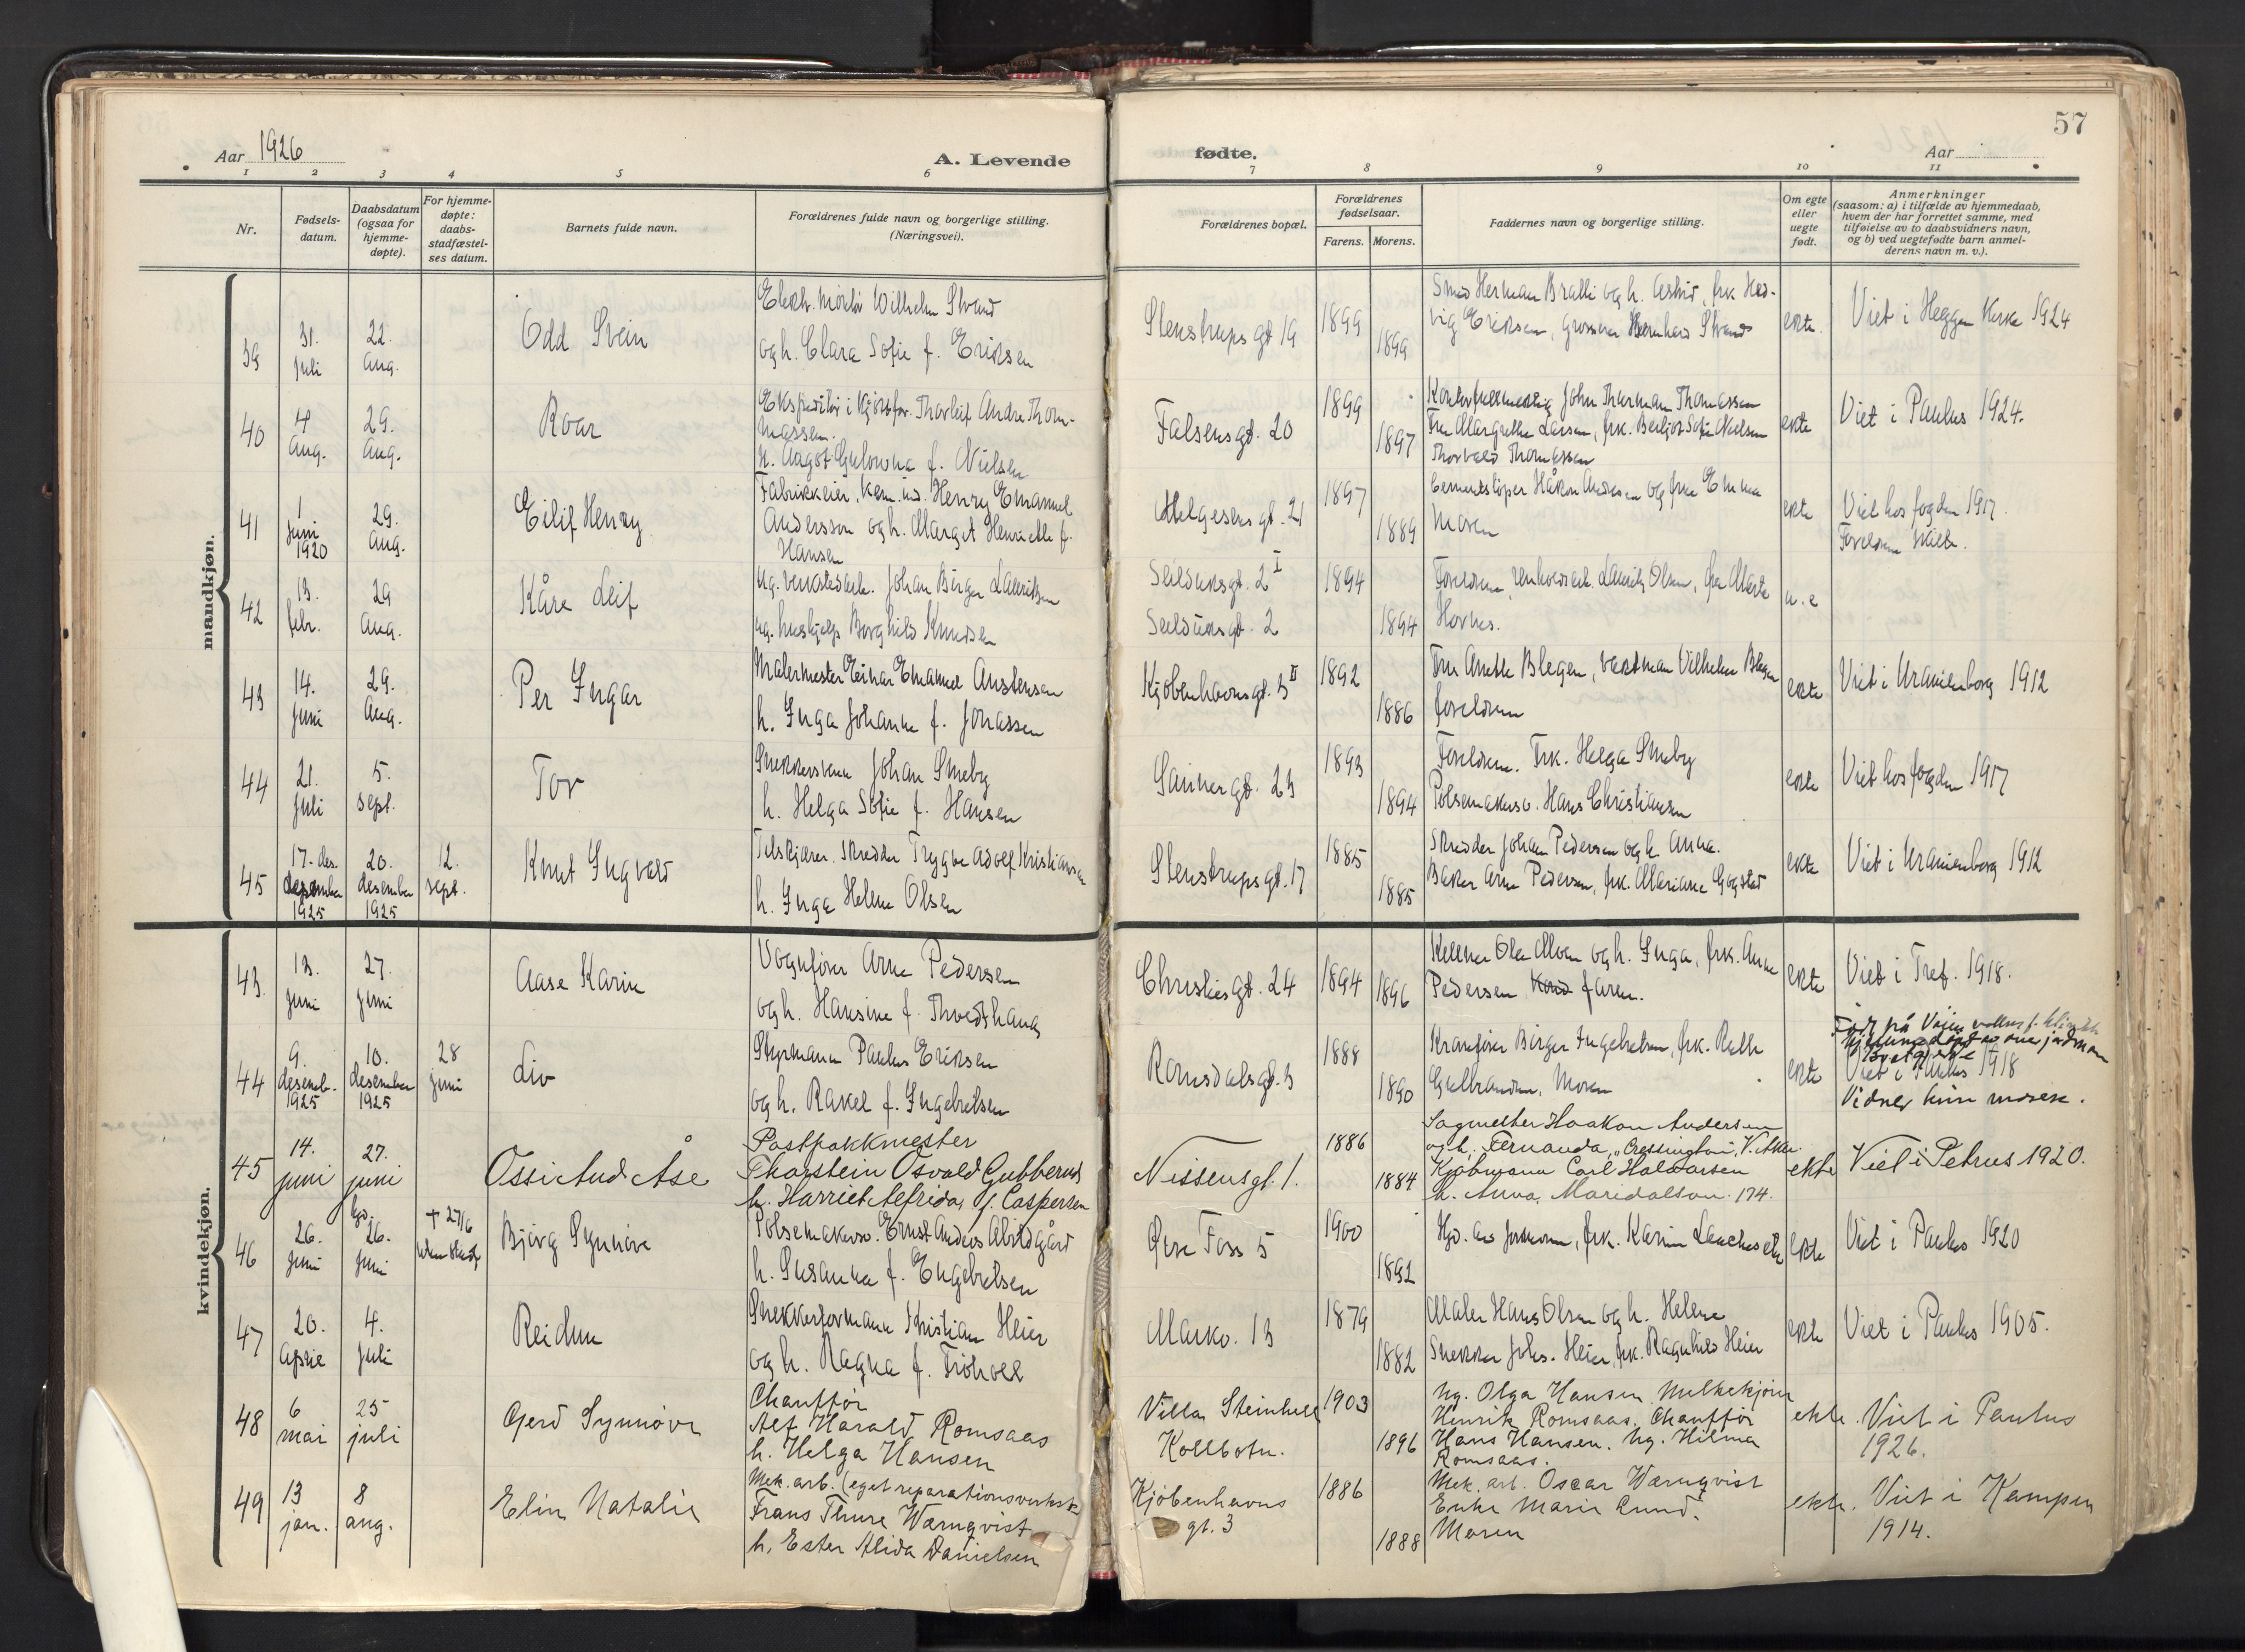 Aar 1926
A. Levende
fødte.
57
Aar
1 2 3 4 5 6 7 8 9 10 11
Nr.
Fødsels-
datum.
Daabsdatum
(ogsaa for
hjemme-
døpte).
For hjemme-
døpte:
daabs-
stadfæstel-
ses datum.
Barnets fulde navn.
Forældrenes fulde navn og borgerlige stilling.
(Næringsvei).
Forældrenes bopæl.
Forældrenes
fødselsaar.
Farens. Morens.
Faddernes navn og borgerlige stilling.
Om egte
eller
uegte
født.
Anmerkninger
(saasom: a) i tilfælde av hjemmedaab,
hvem der har forrettet samme, med
tilføielse av to daabsvidners navn,
og b) ved uegtefødte barn anmel-
derens navn m. v.).
mandkjøn.
39
31.
juli
22.
aug.
Odd Svein
Elektr. montør Wilhelm Strand
og h. Clara Sofie f. Eriksen
Stenstrups gt 19
1899
1899
Smed Herman Bratli og h. Astrid, frk Hed-
vig Eriksen, grosserer Bernhard Strand
ekte.
Viet i Heggen Kirke 1924
40
4
aug.
29.
aug.
Roar
Ekspeditør i kjøtfor. Thorleif Andre Thom-
massen.
h. Aagot Gulowna f. Nielsen
Falsensgt. 20
1899
1897
Kontorfuldmektig John Thurman Thomassen
Fru Margrethe Larsen, frk. Bergljot Sofie Nielsen
Thorvald Thomassen
ekte
Viet i Paulus 1924.
41
1
juni
1920
29.
aug.
Eilif Henry
Fabrikkeier, kem. ind. Henry Emanuel
Andersson og h. Margit Henriette f.
Hansen
Helgesens gt. 21
1897
1889
Cementstøper Håkon Andersen og frue Emma
Moren
ekte
Viet hos fogden 1917.
Foreldrene skilt.
42
13.
febr.
29
aug.
Kåre Leif
ug. verkstedarb. Johan Birger Lauritsen
ug. hushjelp Borghild Knudsen
Seilduksgt. 2 I
Seilduksgt. 2
1894
1894
Foreldrene, renholdsarb. Laurits Olsen, fru Marta
Hovnes.
u. e
43
14.
juni
29.
aug.
Per Ingar
Malermester Einar Emanuel Austensen
h. Inga Johanne f. Jonassen
Kjøbenhavnsgt. 3 II
1892
1886
Fru Anette Blegen, vaktman Vilhelm Blegen
foreldrene
ekte
Viet i Uranienborg 1912
44
21.
juli
5.
sept.
Tor
Snekkersvenn Johan Smeby
h. Helga Sofie f. Hansen
Sannergt. 23
1893
1894
Foreldrene. Frk. Helga Smeby
Pølsemakersv. Hans Christiansen
ekte
Viet hos fogden 1917
45
17. des.
desember
1925
20.
desember
1925
12.
sept.
Knut Ingvald
Tilskjærer. Skredder Trygve Adolf Kristiansen
h. Inga Helene Olsen
Stenstrupsgt. 17
1885
1885
Skredder Johan Pedersen og h. Anna.
Baker Arne Pedersen, frk. Mariane Gogstad
ekte
Viet i Uranienborg 1912
kvindekjøn.
43.
13.
juni
27.
juni
Aase Karin
Vognfører Arne Pedersen
og h. Hansine f. Thvedthaug
Christiesgt. 24
1894
1896
Kellner Ole Moen og h. Inga, frk. Anne
Pedersen faren.
ekte
Viet i Tref. 1918.
44
9.
desemb.
1925
10.
desember
1925
28
juni
Liv
Styrmann Paulus Eriksen
og h. Rakel f. Ingebretsen
Romsdalsgt. 3
1888
1890
Kranfører Birger Ingebretsen, frk. Ruth
Gulbrandsen, Moren
ekte
Født på klinikk
Hjemmedøpt av jordmor
Viet i Paulus 1918
Vidner kun moren.
45
14.
juni
27.
juni
Ossi Aud Åse
Postpakkmester
Thorstein Osvald Gubberud
h. Harriet Alfrida, f. Caspersen
Nissensgt. 1.
1886
1884
Sagmester Haakon Andersen
og h. Fernanda, "Cressington", V. Aker
Kjøbmann Carl Halvorsen
h. Anna, Maridalsvn. 174.
ekte
Viet i Petrus 1920.
46
26.
juni
hjd.
26.
juni
+ 27/6
uten stadf.
Bjørg Synnøve
Pølsemakersv. Ernst Anders Abildgård
h. Susanna f. Engebretsen
Øvre Foss 5
1900
1892
Hjd. av jordmoren, frk. Karin
ekte
Viet i Paulus 1920
47
20.
april
4.
juli
Reidun
Snekkerformann Kristian Heier
og h. Ragna f. Frøhoel
Markv. 13
1879
1882
Maler Hans Olsen og h. Helene
Snekker Johs. Heier, frk. Ragnhild Heier
ekte
Viet i Paulus 1905.
48
6
mai
25
juli
Gerd Synnøve
Chauffør
Alf Harald Romsaas
h. Helga Hansen
Villa Steinhell
Kolbotn.
1903
1896
Ug. Olga Hansen. Melkekjører
Henrik Romsaas. Chauffør
Hans Hansen. Ug. Hilma
Romsaas.
ekte.
Viet i Paulus
1926.
49
13
jan.
8
aug.
Elin Natalie
Mek. arb. (eget reparationsverkst.)
Frans Thure Wärnqvist
h. Ester Alida Danielsen
Kjøbenhavns
gt. 3
1886
1888
Mek. arb. Oscar Wärnqvist
Enke Marie Lund.
Moren
ekte.
Viet i Kampen
1914.